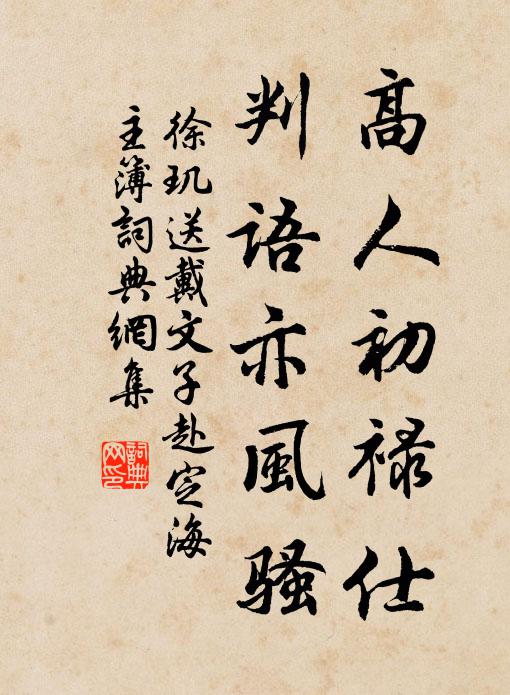 高人初祿仕
判語亦風騷
徐璣送戴文子赴定海
主簿詞典網集
詞典
网印